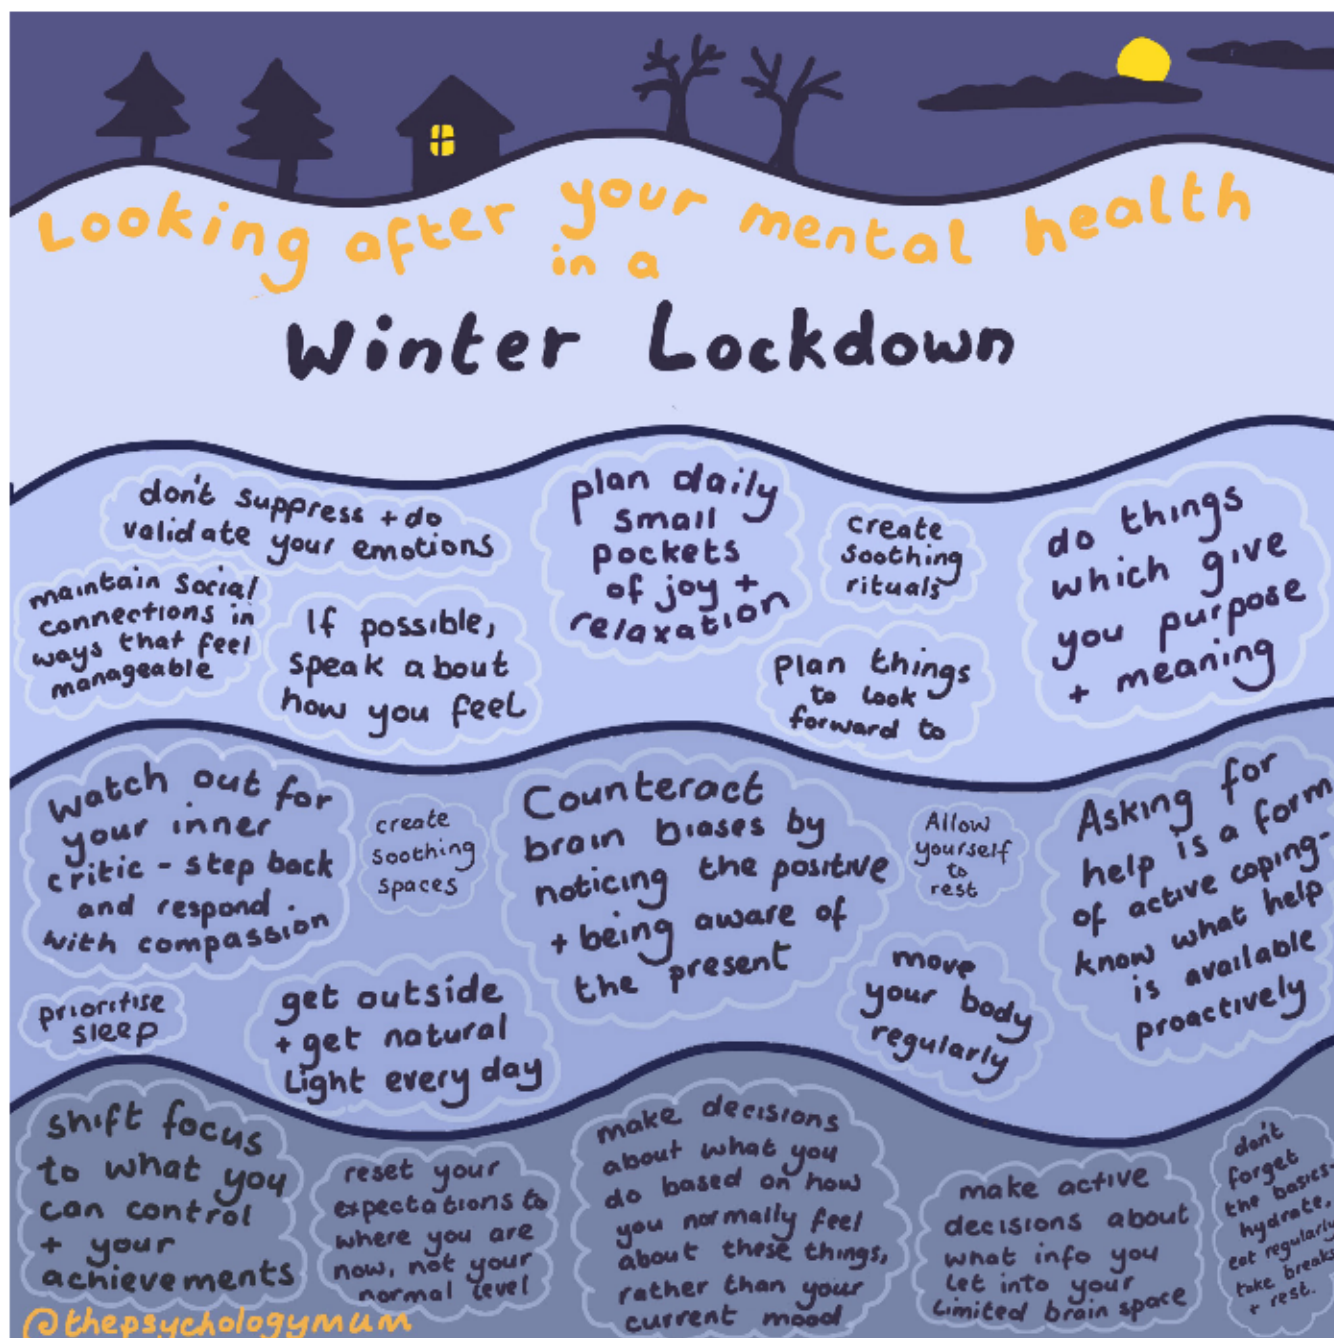 Looking after your mental health
in a
Winter Lockdown
don't suppress + do
validate your emotions
maintain social
connections in
ways that feel
manageable
If possible,
speak about
how you feel
plan daily
small
pockets
of joy +
relaxation
create
soothing
rituals
plan things
to look
forward to
do things
which give
you purpose
+ meaning
watch out for
your inner
critic - step back
and respond
with compassion
create
soothing
spaces
Counteract
brain biases by
noticing the positive
+ being aware of
the present
Allow
yourself
to
rest
Asking for
help is a form
of active coping-
know what help
is available
proactively
prioritise
sleep
get outside
+ get natural
light every day
move
your body
regularly
shift focus
to what you
can control
+ your
achievements
reset your
expectations to
where you are
now, not your
normal level
make decisions
about what you
do based on how
you normally feel
about these things,
rather than your
current mood
make active
decisions about
what info you
let into your
limited brain space
don't
forget
the basics-
hydrate,
eat regularly
take breaks
+ rest.
@thepsychologymum